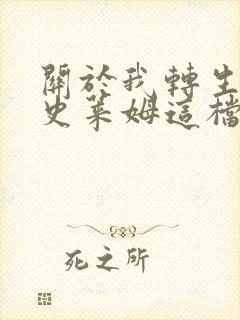 關於我轉生
史萊姆這檔
死之所